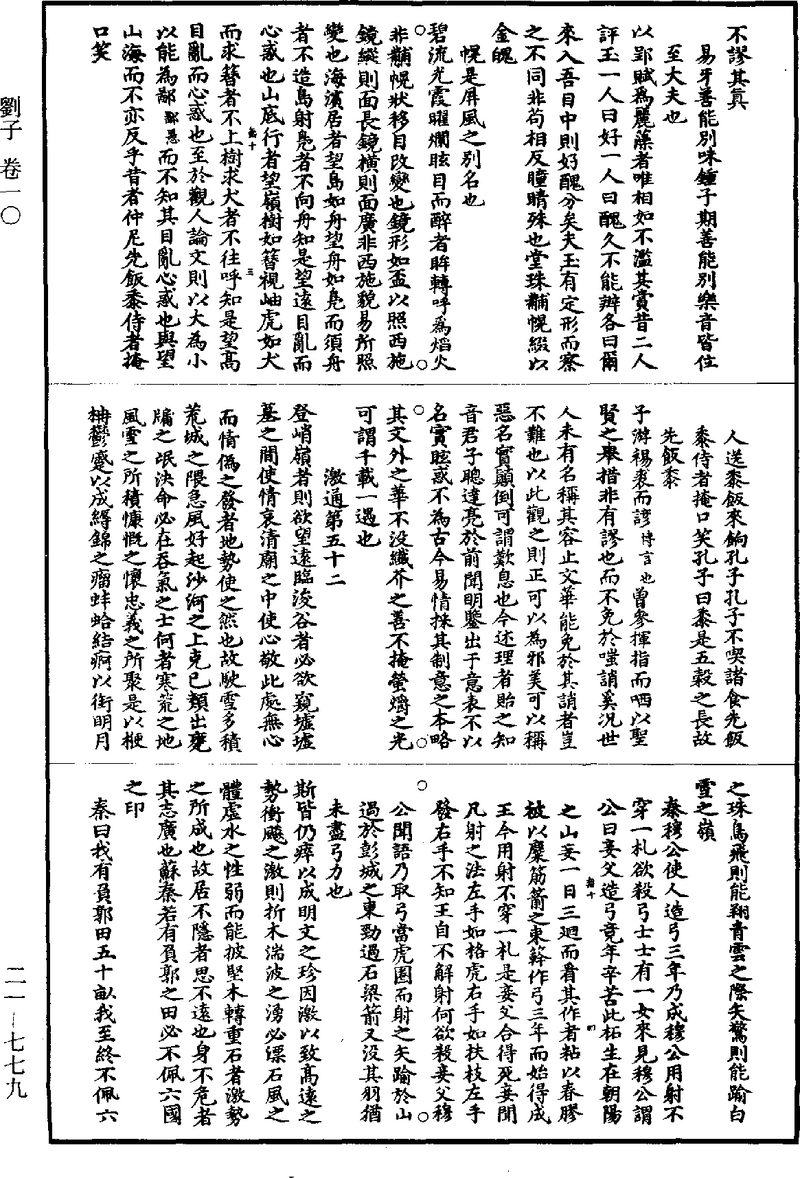 不謬其眞
易牙善能別味鍾子期善能別樂音皆位
至大夫也
以郢賦爲麗藻者唯相如不濫其賞昔二人
評玉一人曰好一人曰醜久不能辯各曰爾
來入吾目中則好醜分矣夫玉有定形而察
之不同非苟相反瞳睛殊也堂珠黼幌綴以
金魄
幌是屏風之别名也
碧流光霞曜爛眩目而醉者眸轉呼爲焰火
非黼幌狀移目改變也鏡形如盃以照西施
鏡縱則面長鏡橫則面廣非西施貌易所照
變也海濱居者望島如舟望舟如鳬而須舟
者不造島射鳬者不向舟知是望遠目亂而
心惑也山底行者望嶺樹如簪視岫虎如犬
而求簪者不上樹求犬者不往呼知是望高
目亂而心惑也至於觀人論文則以大為小
以能為鄙鄙惡而不知其目亂心惑也與望
山海而不亦反乎昔者仲尼先飯黍侍者掩
口笑
人送黍飯來餉孔子孔子不喫諸食先飯
黍侍者掩口笑孔子曰黍是五穀之長故
先飯黍
子游裼裘而諺諺言也曾參揮指而哂以聖
賢之舉措非有謬也而不免於嗤誚奚況世
人未有名稱其容止文華能免於其誚者豈
不難也以此觀之則正可以為邪美可以稱
惡名實顚倒可謂歎息也今述理者貽之知
音君子聰達亮於前聞明鑒出于意表不以
名實眩惑不為古今易情採其制意之本略
其文外之華不没纎芥之善不掩螢爝之光
可謂千載一遇也
激通第五十二
登峭嶺者則欲望遠臨浚谷者必欲窺墟墟
墓之間使情哀清廟之中使心敬此處無心
而情偽之發者地勢使之然也故駛雪多積
荒城之隈急風好起沙河之上克己類出甕
牖之氓決命必在吞氣之士何者寒荒之地
風雪之所積慷慨之懷忠義之所聚是以梗
柟鬱蹙以成縟錦之瘤蚌蛤結痾以銜明月
之珠鳥飛則能翔青雲之際矢驚則能踰白
雪之嶺
秦穆公使人造弓三年乃成穆公用射不
穿一札欲殺弓士士有一女來見穆公謂
公曰妾父造弓竟年辛苦此柘生在朝陽
之山妾一日三廻而看其作者粘以春膠
被以麋筋箭之東幹作弓三年而始得成
王今用射不穿一札是妾父合得死妾聞
凡射之法左手如格虎右手如扶枝左手
發右手不知王自不解射何欲殺妾父穆
公聞語乃取弓當虎圈而射之矢踰於山
過於彭城之東勁過石梁箭又没其羽猶
未盡弓力也
斯皆仍瘁以成明文之珍因激以致高遠之
勢衝飈之激則折木湍波之湧必漂石風之
體虛水之性弱而能披堅木轉重石者激勢
之所成也故居不隱者思不遠也身不危者
其志廣也蘇秦若有負郭之田必不佩六國
之印
秦曰我有負郭田五十畝我至終不佩六
劉子 卷一〇
二一—七七九